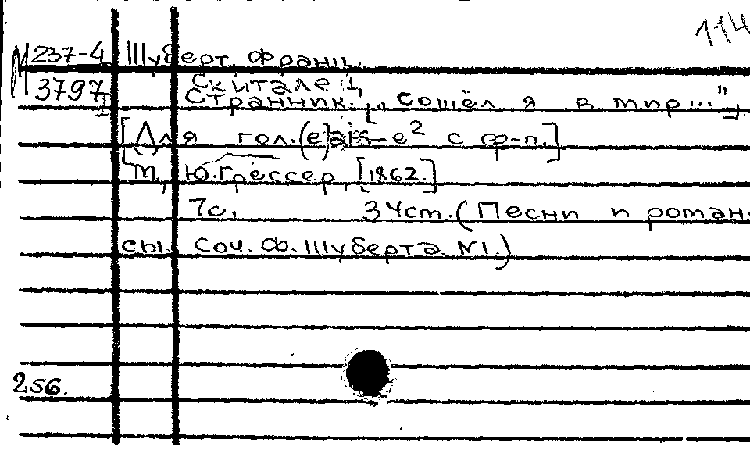 114
М 237-4 Шуберт, Франц.
3797 Скиталец
Странник. [„ Сошёл я в мир..."]
[Для гол. (e) -e² с ф-п.]
М., Ю. Грессер, [1862.]
7с. 34см. (Песни и роман-
сы. Соч. Ф. Шуберта. №1.)
256.